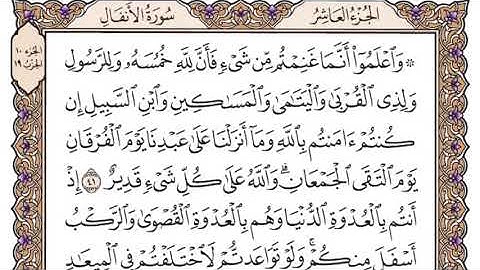 الجُزْءُ العَاشِرُ سُورَةُ الأَنفَالِ
الجزء ١٠
الحزب ١٩
۞ وَٱعْلَمُوٓا۟ أَنَّمَا غَنِمْتُم مِّن شَىْءٍ فَأَنَّ لِلَّهِ خُمُسَهُۥ وَلِلرَّسُولِ
وَلِذِى ٱلْقُرْبَىٰ وَٱلْيَتَـٰمَىٰ وَٱلْمَسَـٰكِينِ وَٱبْنِ ٱلسَّبِيلِ إِن
كُنتُمْ ءَامَنتُم بِٱللَّهِ وَمَآ أَنزَلْنَا عَلَىٰ عَبْدِنَا يَوْمَ ٱلْفُرْقَانِ
يَوْمَ ٱلْتَقَى ٱلْجَمْعَانِ ۗ وَٱللَّهُ عَلَىٰ كُلِّ شَىْءٍ قَدِيرٌ ٤١ إِذْ
أَنتُم بِٱلْعُدْوَةِ ٱلدُّنْيَا وَهُم بِٱلْعُدْوَةِ ٱلْقُصْوَىٰ وَٱلرَّكْبُ
أَسْفَلَ مِنكُمْ ۚ وَلَوْ تَوَاعَدتُّمْ لَٱخْتَلَفْتُمْ فِى ٱلْمِيعَـٰدِ